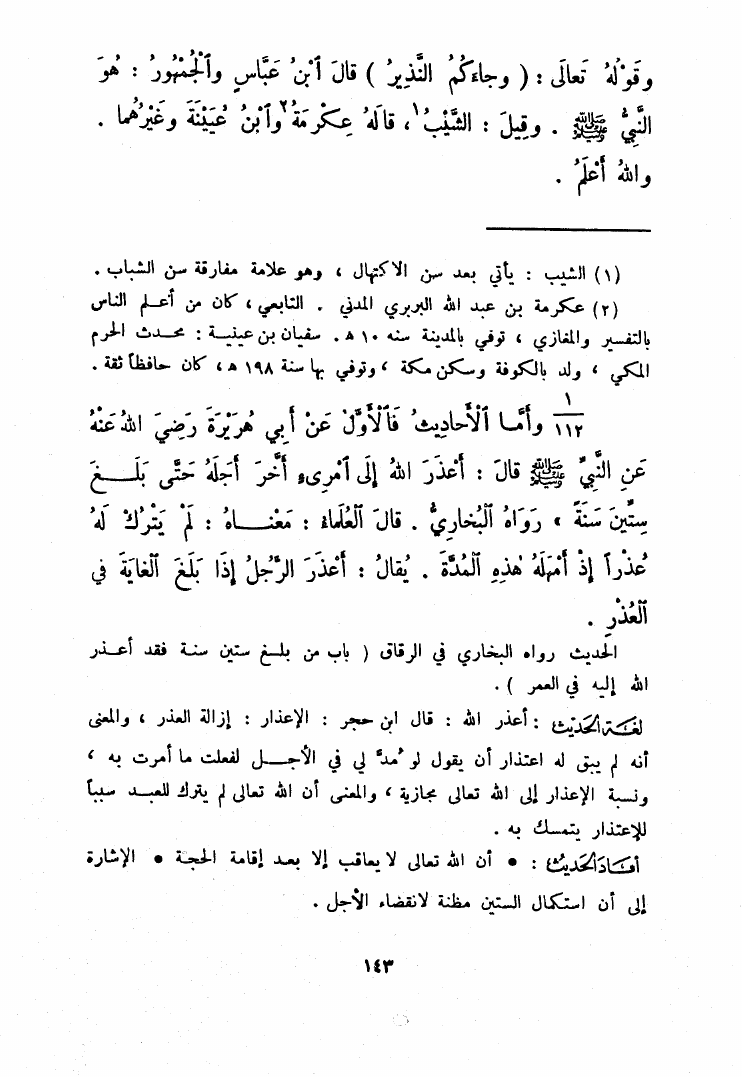 وقَوْلُهُ تَعالَى : ( وجاءَكُمُ النَّذِيرُ ) قالَ ٱبْنُ عَبَّاسٍ وٱلْجُمْهُورُ : هُوَ
النَّبِيُّ ﷺ . وقِيلَ : الشَّيْبُ١ ، قالَهُ عِكْرِمَةُ٢ وٱبْنُ عُيَيْنَةَ وغَيْرُهُما .
واللهُ أَعْلَمُ .
(١) الشيب : يأتي بعد سن الاكتهال ، وهو علامة مفارقة سن الشباب .
(٢) عكرمة بن عبد الله البربري المدني . التابعي ، كان من أعلم الناس
بالتفسير والمغازي ، توفي بالمدينة سنه ١٠ ه . سفيان بن عيينة : محدث الحرم
المكي ، ولد بالكوفة وسكن مكة ، وتوفي بها سنة ١٩٨ ه ، كان حافظاً ثقة .
١/١١٢ وأَمَّا ٱلْأَحادِيثُ فَٱلْأَوَّلُ عَنْ أَبِي هُرَيْرَةَ رَضِيَ اللهُ عَنْهُ
عَنِ النَّبِيِّ ﷺ قالَ : أَعْذَرَ اللهُ إِلَى ٱمْرِىءٍ أَخَّرَ أَجَلَهُ حَتَّى بَلَغَ
سِتِّينَ سَنَةً » رَوَاهُ ٱلْبُخَارِيُّ . قالَ ٱلْعُلَماءُ : مَعْنَاهُ : لَمْ يَتْرُكْ لَهُ
عُذْراً إِذْ أَمْهَلَهُ هٰذِهِ ٱلْمُدَّةَ . يُقالُ : أَعْذَرَ الرَّجُلُ إِذَا بَلَغَ ٱلْغايَةَ فِي
ٱلْعُذْرِ .
الحديث رواه البخاري في الرقاق ( باب من بلغ ستين سنة فقد أعذر
الله إليه في العمر ) .
لغة الحديث : أعذر الله : قال ابن حجر : الإعذار : إزالة العذر ، والمعنى
أنه لم يبق له اعتذار أن يقول لو مُدَّ لي في الأجل لفعلت ما أمرت به ،
ونسبة الإعذار إلى الله تعالى مجازية ، والمعنى أن الله تعالى لم يترك للعبد سبباً
للإعتذار يتمسك به .
أفاد الحديث : • أن الله تعالى لا يعاقب إلا بعد إقامة الحجة • الإشارة
إلى أن استكمال الستين مظنة لانقضاء الأجل .
١٤٣